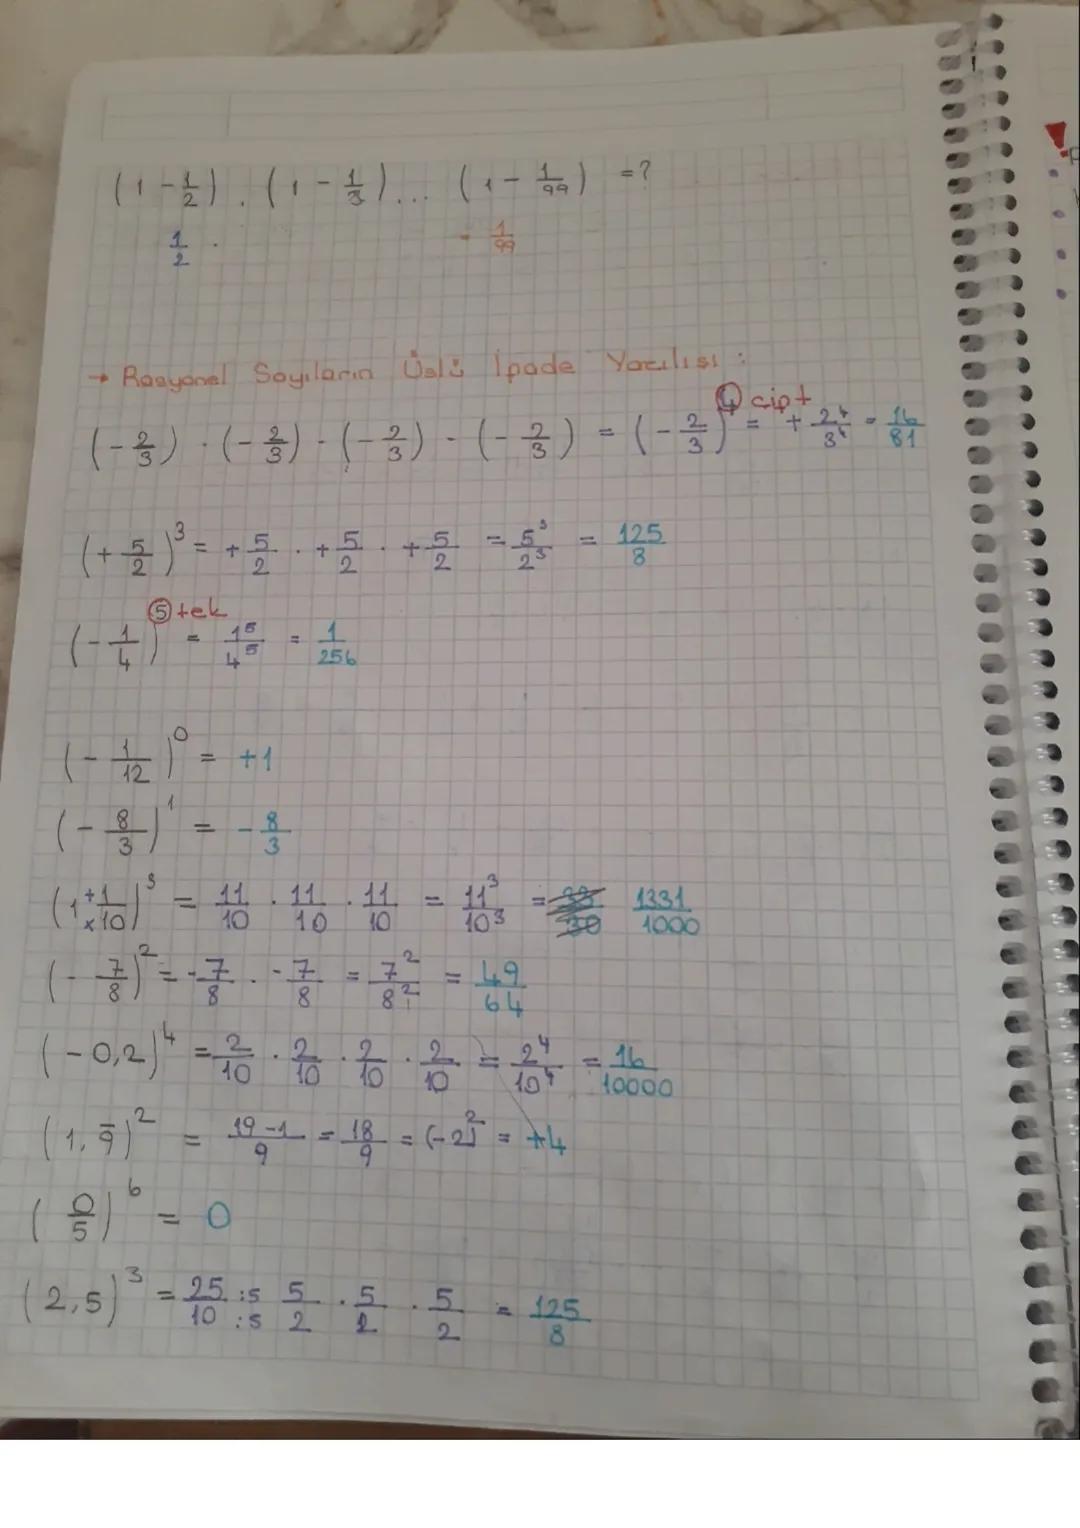 (1 - 1/2) . (1 - 1/3) ... (1 - 1/99) = ?
1/2 . - 1/99
→ Rasyonel Sayıların Üslü İfade Yazılışı :
(- 2/3) · (- 2/3) - (- 2/3) - (- 2/3) = (- 2/3)^④ çift = + 2^4/3^4 = 16/81
(+ 5/2)^3 = + 5/2 · + 5/2 · + 5/2 = 5^3/2^3 = 125/8
(- 1/4)^⑤ tek = 1^5/4^5 = 1/256
(- 1/12)^0 = +1
(- 8/3)^1 = - 8/3
(1 + 1/x 10)^3 = 11/10 · 11/10 · 11/10 = 11^3/10^3 = 1331/1000
(- 7/8)^2 = - 7/8 · - 7/8 = 7^2/8^2 = 49/64
(-0,2)^4 = 2/10 · 2/10 · 2/10 · 2/10 = 2^4/10^4 = 16/10000
(1,9̅)^2 = 19-1/9 = 18/9 = (-2)^2 = +4
(0/5)^6 = 0
(2,5)^3 = 25/10 :5/:5 5/2 · 5/2 · 5/2 = 125/8